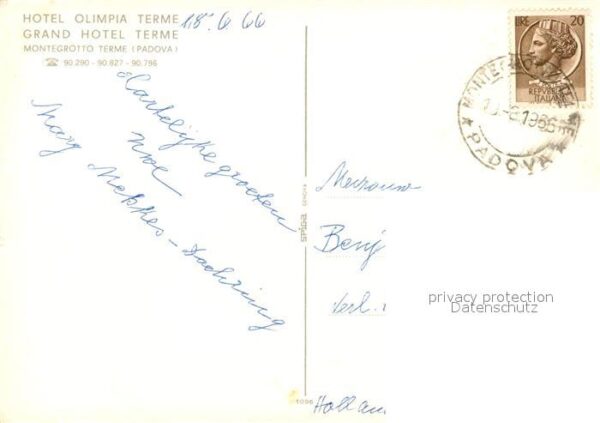 HOTEL OLIMPIA TERME
GRAND HOTEL TERME
MONTEGROTTO TERME (PADOVA)
☎ 90.290 - 90.827 - 90.796
18.6.66
Hartelijke groeten
Mary Mekkes-Dachring
LIRE 20
REPVBBLICA
ITALIANA
MONTEGROTTO TERME
PADOVA
spiga GENOVA
Mevrouw
Benj
Verl.
Hollan
1096
privacy protection
Datenschutz